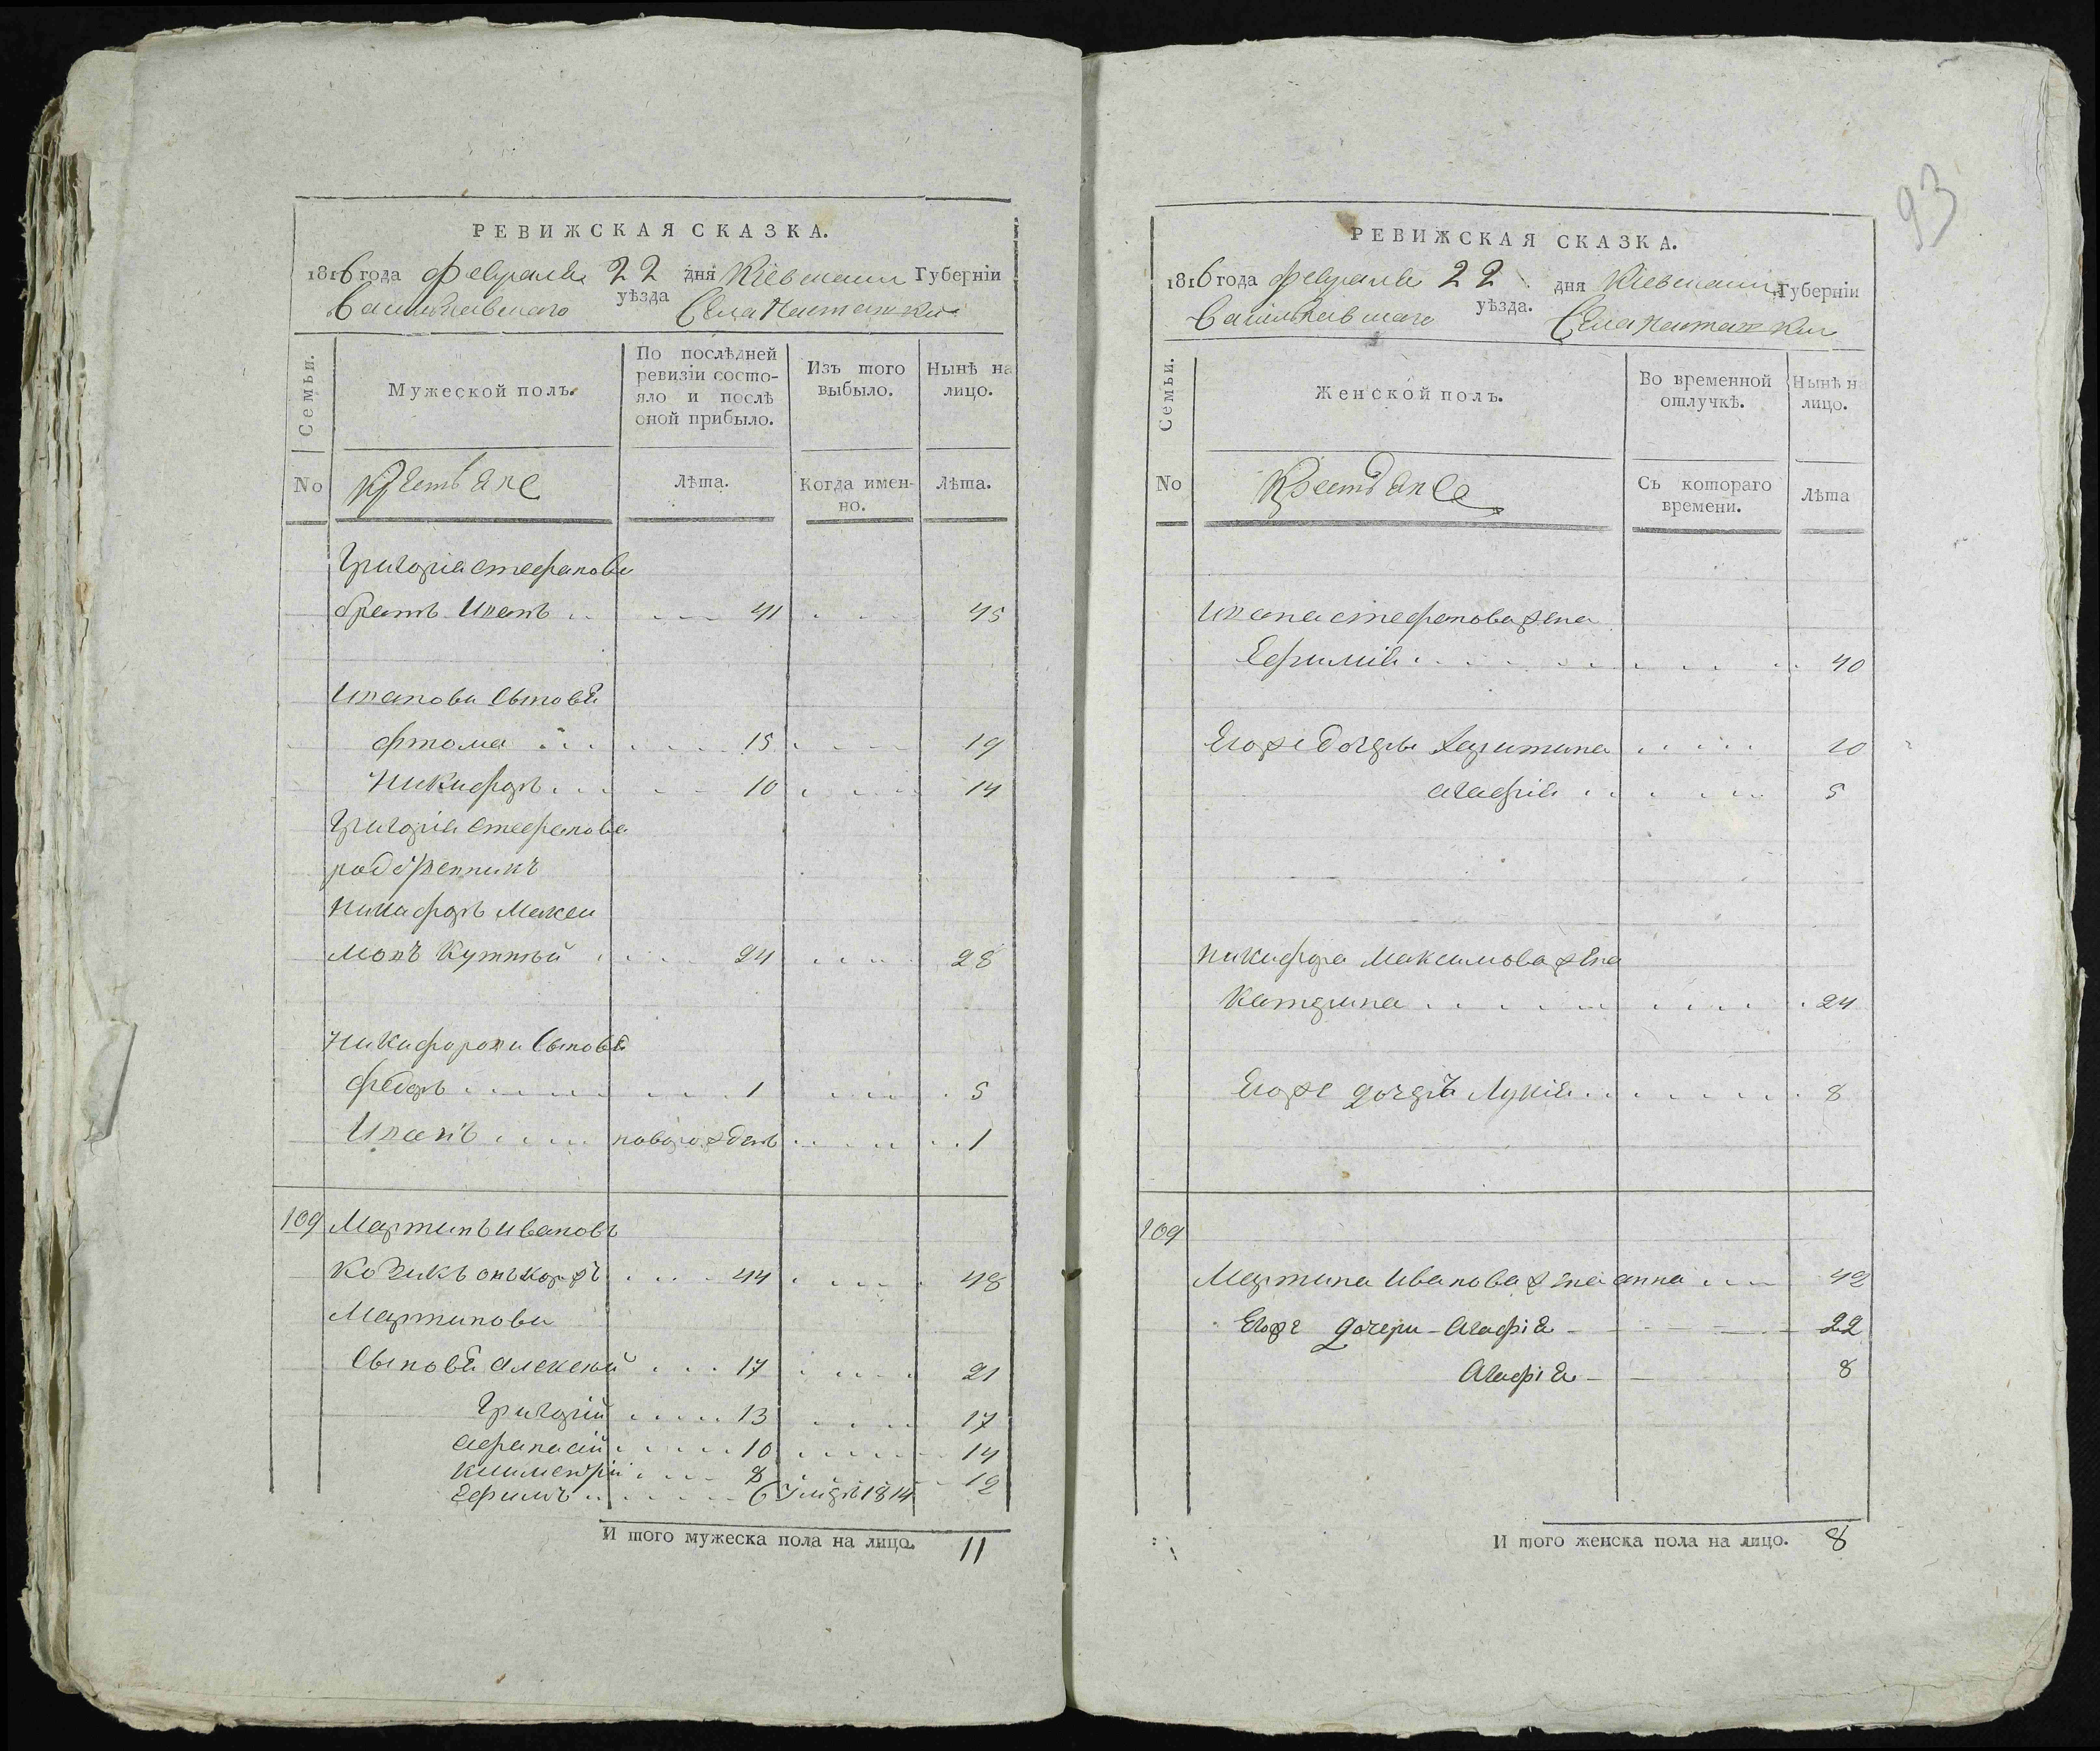 РЕВИЖСКАЯ СКАЗКА.
1816 года Февраля 22 дня Кіевской Губерніи
Васильковскаго уѣзда Села Пятажки
Семьи.
Мужеской полъ.
По послѣдней ревизіи состо-
яло и послѣ оной прибыло.
Изъ того выбыло.
Нынѣ на лицо.
No
Крестьяне
Лѣта.
Когда имен-
но.
Лѣта.
Григорія Стефанова
братъ Игнатъ 41 45
сыновья
Фтома 15 19
Никифоръ 10 14
Григорія Стефанова
Никифоръ Макси
мовъ 24 28
Никифорови сыновья
Федоръ 1 5
Иванъ новорожденъ 1
109 Мартинъ Ивановъ
Козикъ онъ 44 48
Мартинови
Сыновья Алексей 17 21
Григорій 13 17
Афанасій 10 14
8 12
Ефимъ 6 умеръ 1814
И того мужеска пола на лицо. 11
93
РЕВИЖСКАЯ СКАЗКА.
1816 года Февраля 22 дня Кіевской Губерніи
Васильковскаго уѣзда. Села Пятажки
Семьи.
Женской полъ.
Во временной отлучкѣ.
Нынѣ н лицо.
No
Крестьяне
Съ котораго времени.
Лѣта
Стефанова жена
Ефимія 40
Его же дочеръ Харитина 10
Агафія 5
Никифора Максимова жена
Катерина 24
Его же дочеръ Лукія 8
109
Мартина Иванова жена Анна 42
Его же дочери - Агафія 22
Агафія 8
И того женска пола на лицо. 8